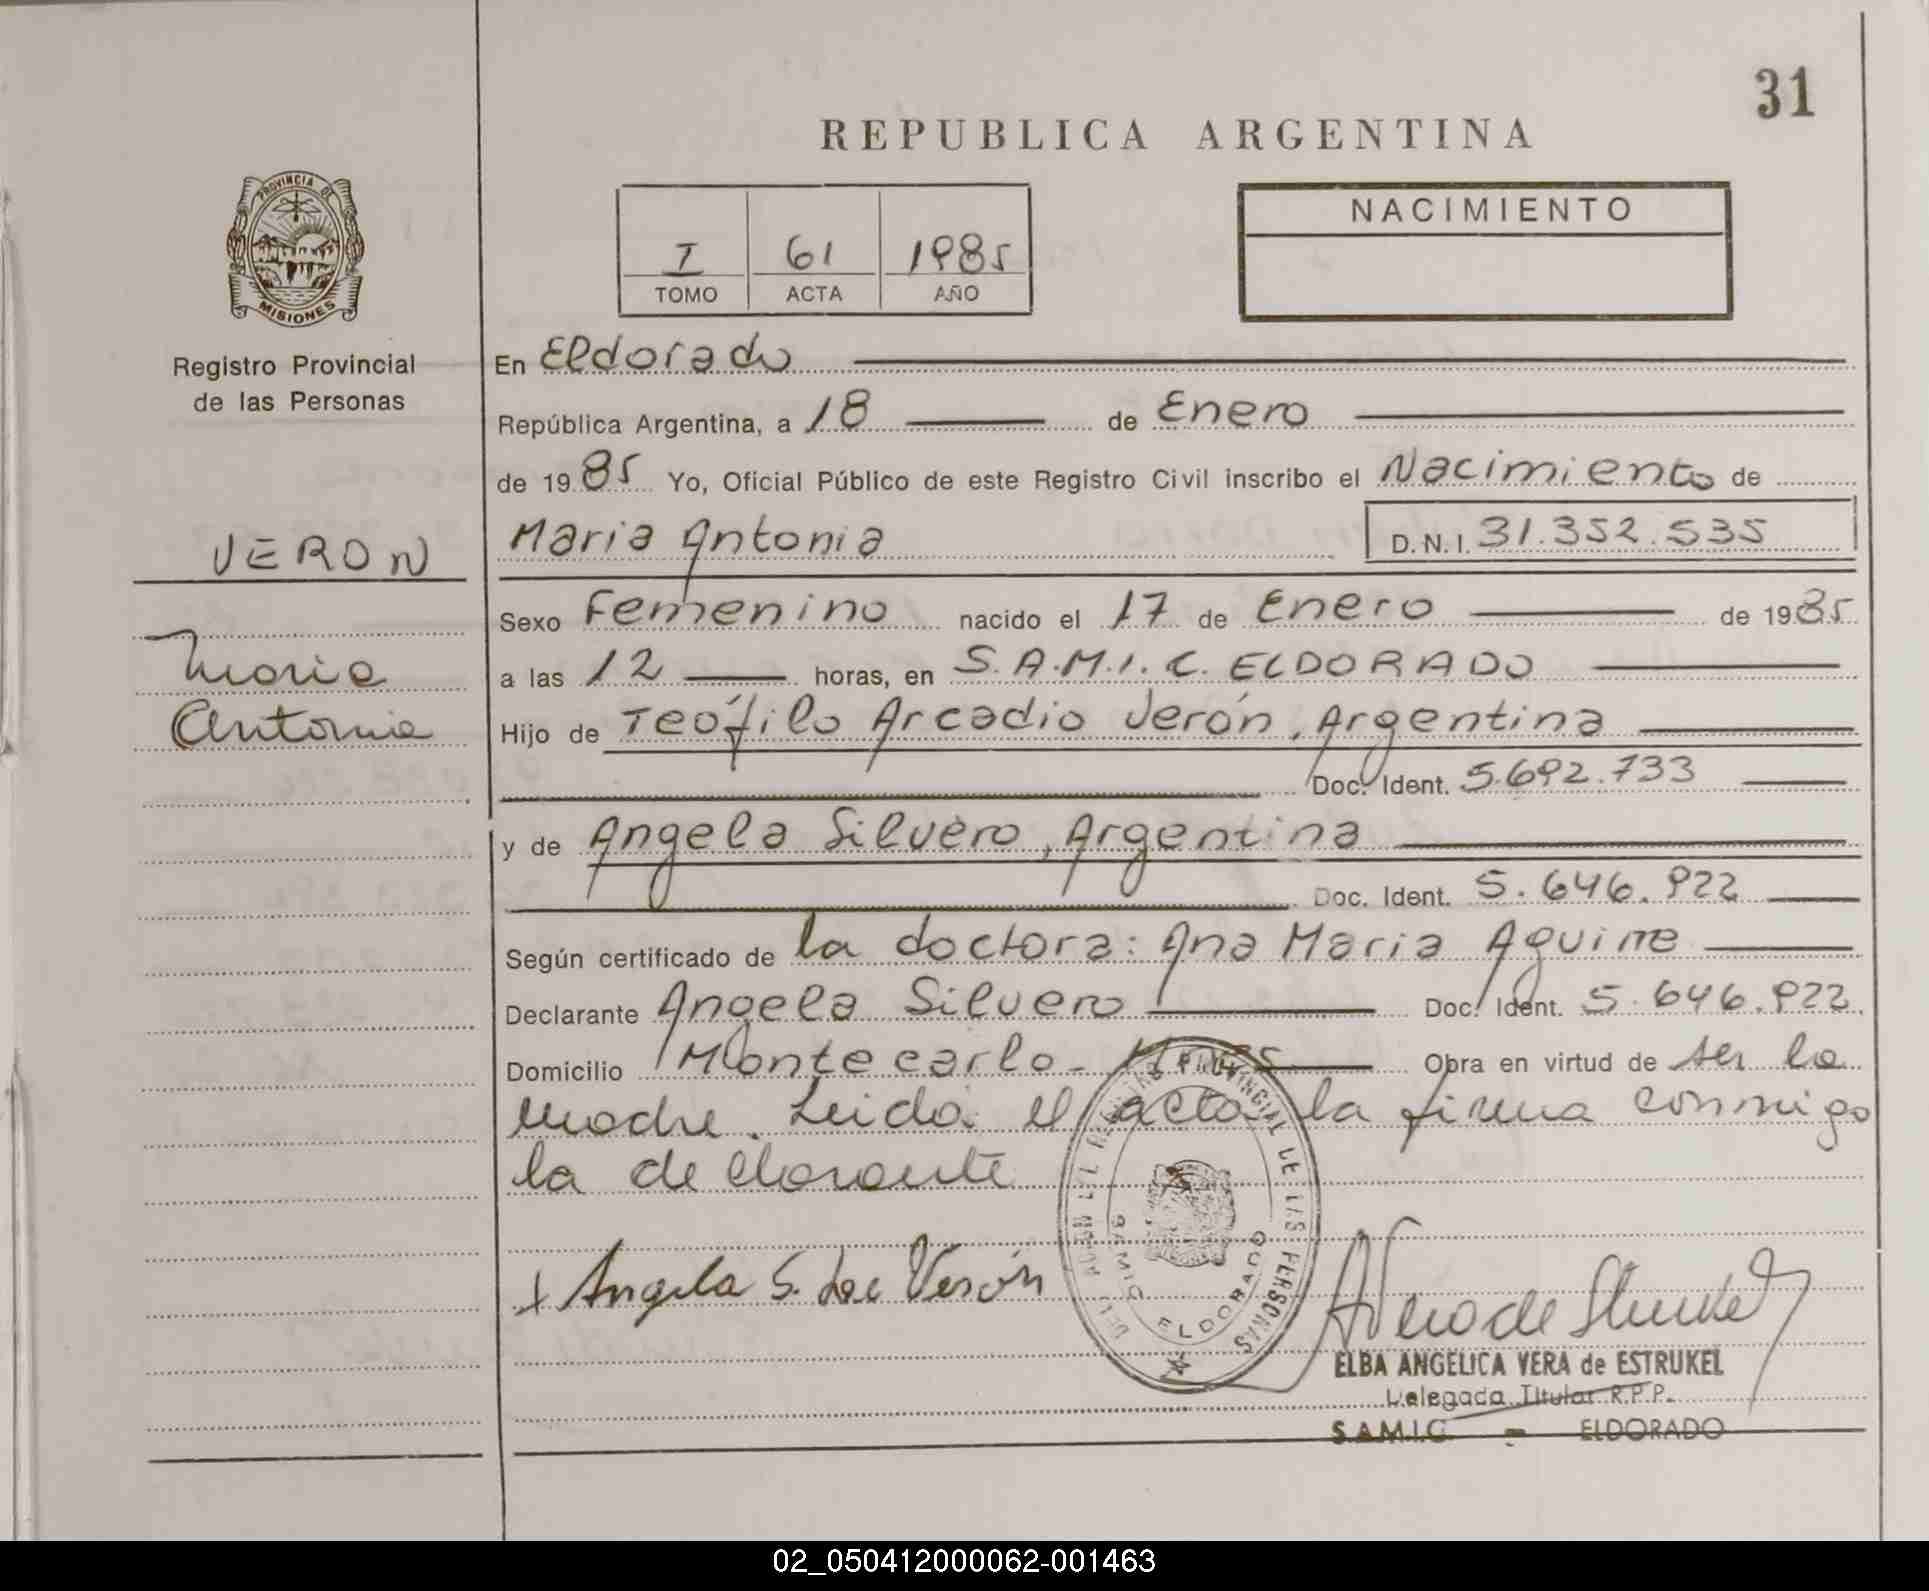 31
REPUBLICA ARGENTINA
PROVINCIA DE
MISIONES
Registro Provincial
de las Personas
I 61 1985
TOMO ACTA AÑO
NACIMIENTO
En Eldorado
República Argentina, a 18 de Enero
de 1985 Yo, Oficial Público de este Registro Civil inscribo el Nacimiento de
VERON
Maria Antonia D.N.I. 31.352.535
Sexo Femenino nacido el 17 de Enero de 1985
Maria
Antonia
a las 12 horas, en S.A.M.I.C. ELDORADO
Hijo de Teófilo Arcadio Verón, Argentina
Doc. Ident. 5.692.733
y de Angela Silvero, Argentina
Doc. Ident. 5.646.922
Según certificado de la doctora: Ana Maria Aguirre
Declarante Angela Silvero Doc. Ident. 5.646.922.
Domicilio Montecarlo - Mnes Obra en virtud de ser la
madre. Leida el acta la firma conmigo
la declarante
PROVINCIAL DE LAS PERSONAS
SAMIC ELDORADO
Angela S. de Verón
ELBA ANGELICA VERA de ESTRUKEL
Delegada Titular R.P.P.
S.A.M.I.C - ELDORADO
02_050412000062-001463